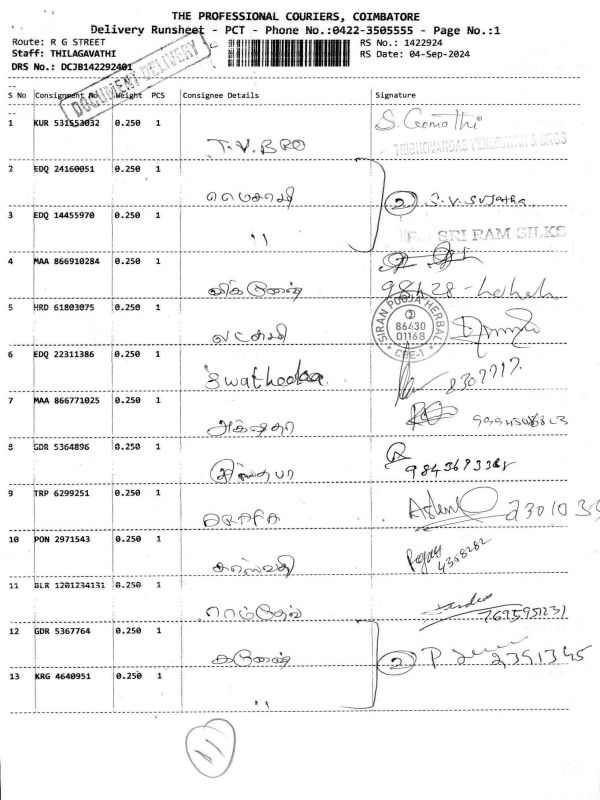 THE PROFESSIONAL COURIERS, COIMBATORE
Delivery Runsheet - PCT - Phone No.:0422-3505555 - Page No.:1
Route: R G STREET
RS No.: 1422924
Staff: THILAGAVATHI
RS Date: 04-Sep-2024
DRS No.: DCJB142292401
DOCUMENT DELIVERY
S No Consignment No Weight PCS Consignee Details Signature
1 KUR 531553032 0.250 1
S. Gomathi
T.V.BRO
TRIBHOVANDAS & BROS
2 EDQ 24160051 0.250 1
மைசூர்
2 S.V. Sujatha
3 EDQ 14455970 0.250 1
"
SRI RAM SILKS
4 MAA 866910284 0.250 1
5 HRD 61803075 0.250 1
லட்சுமி
SIRAN POOJA HERBAL
86430
01168
CBE-1
6 EDQ 22311386 0.250 1
Swathecka
7 MAA 866771025 0.250 1
அக்ஷதா
8 GDR 5364896 0.250 1
9 TRP 6299251 0.250 1
ARAFA
10 PON 2971543 0.250 1
4358282
சரஸ்வதி
11 BLR 1201234131 0.250 1
ராம்தேவ்
7695951231
12 GDR 5367764 0.250 1
கணேஷ்
2 P 2391345
13 KRG 4640951 0.250 1
"
11